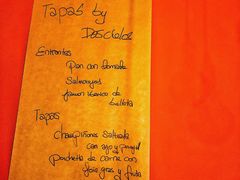 Tapas by
Entrantes
Pan con tomate
Salmorejo
Jamon iberico de
bellota
Tapas
Champiñones salteado
con ajo y perejil
de carne con
foie gras y fruta